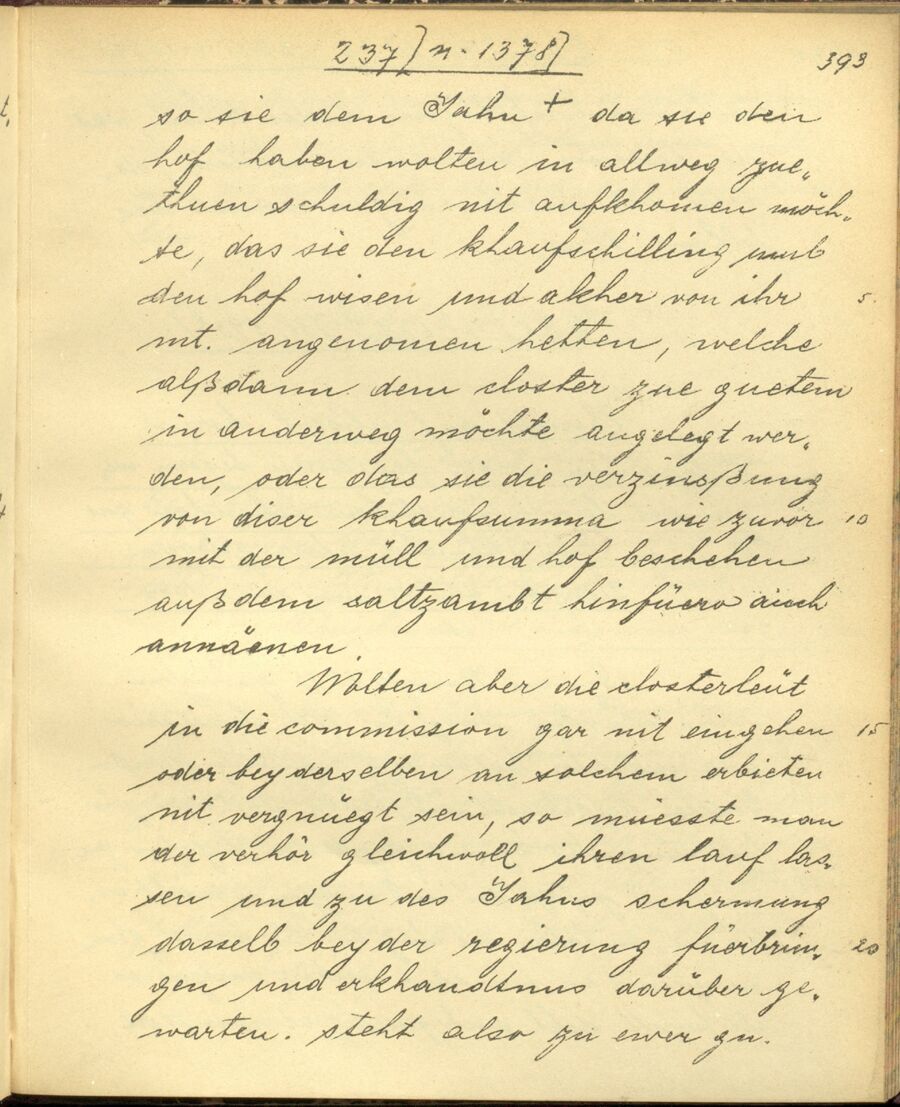 237) n. 1378) 393
so sie dem Jahn + da sie den
hof haben wolten in allweg zue„
thuen schuldig nit aufkhomen möch„
te, das sie den khaufschilling umb
den hof wisen und akher von ihr 5.
mt. angenomen hetten, welche
alßdann dem closter zue guetem
in anderweg möchte angelegt wer„
den, oder das sie die verzinsßung
von diser khaufsumma wie zuvor 10
mit der müll und hof beschehen
außdem saltzambt hinfüero auch
annäenen
Wolten aber die closterleüt
in die commission gar nit eingehen 15
oder bey derselben an solchem erbieten
nit vergnüegt sein, so müesste man
der verhör gleichwoll ihren lauf las„
sen und zu des Jahns schermung
dasselb bey der regierung füerbrin„ 20
gen und erkhandtnus darüber ge„
warten. steht also zu ewer gn.